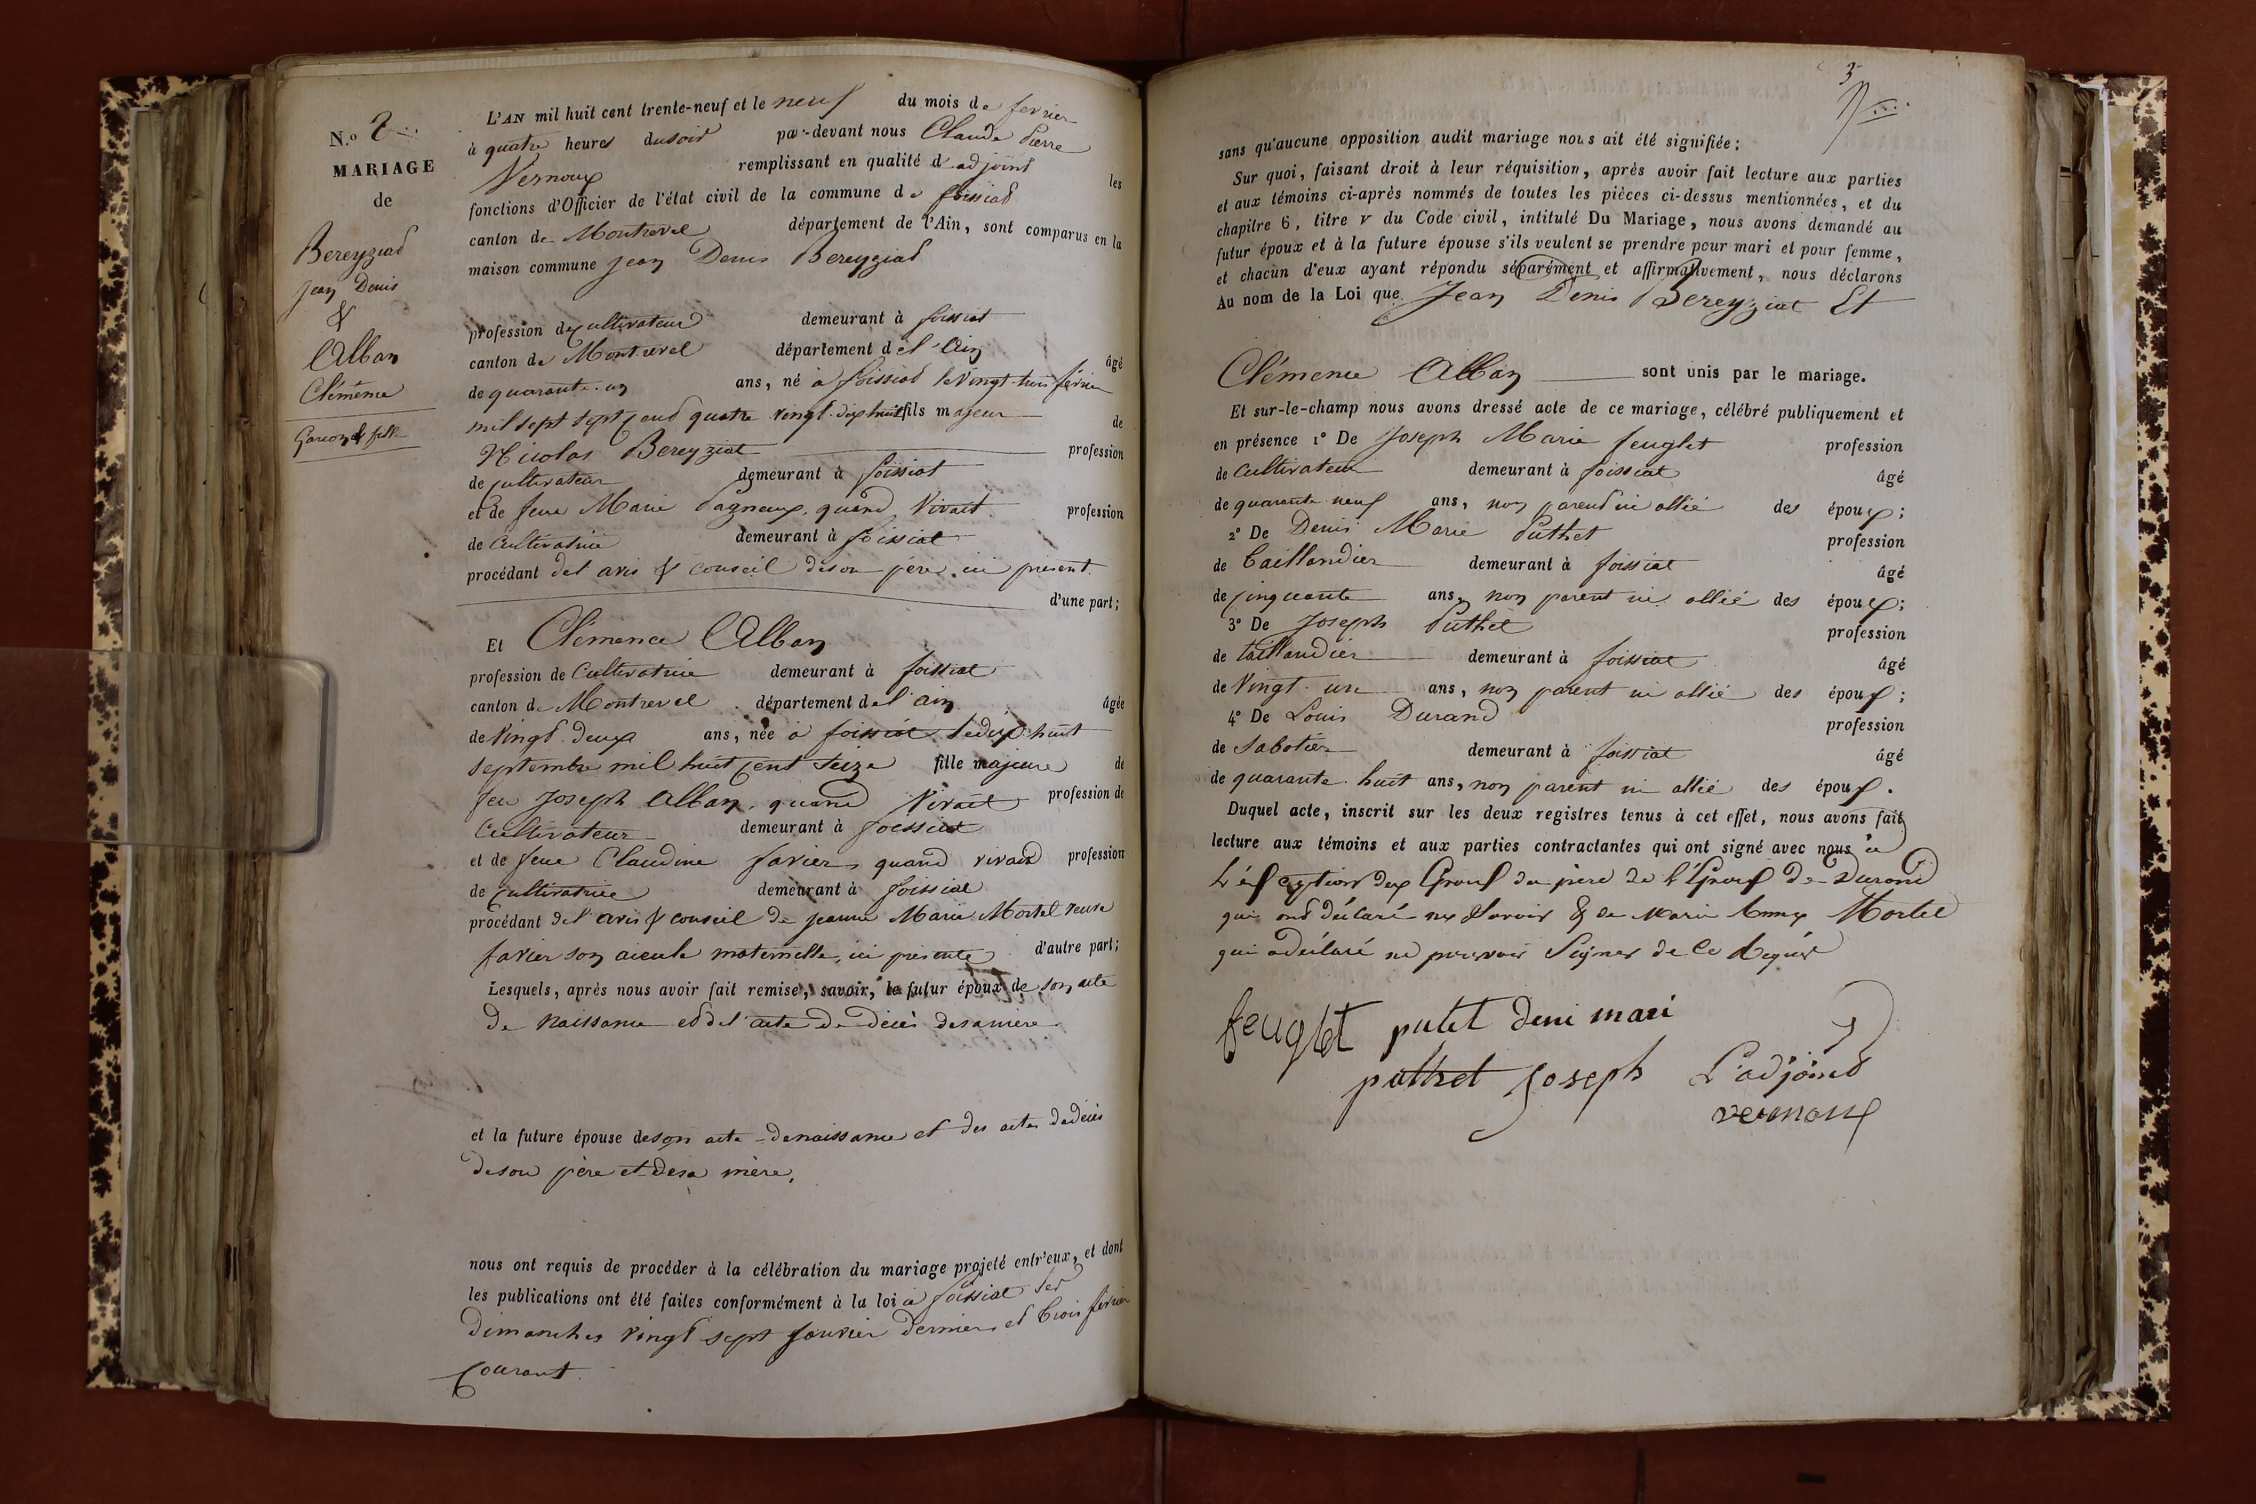 N.° 2
MARIAGE
de
Bereyziat
Jean Denis
&
Alban
Clémence
Garçon & fille
L'AN mil huit cent trente-neuf et le neuf du mois de fevrier
à quatre heures du soir par-devant nous Claude Pierre
Vernoux remplissant en qualité d'adjoint les
fonctions d'Officier de l'état civil de la commune de foissiat
canton de Montrevel département de l'Ain, sont comparus en la
maison commune Jean Denis Bereyziat
profession de cultivateur demeurant à foissiat
canton de Montrevel département de l'Ain âgé
de quarante-un ans, né à foissiat le vingt-trois février
mil sept sept cent quatre vingt dix huit fils majeur de
Nicolas Bereyziat profession
de cultivateur demeurant à foissiat
et de feue Marie Pagneux, quand vivait profession
de cultivatrice demeurant à foissiat
procédant de l'avis & conseil de son père, ici présent
d'une part;
Et Clémence Alban
profession de cultivatrice demeurant à foissiat
canton de Montrevel département de l'ain âgée
de vingt-deux ans, née à foissiat le dix-huit
septembre mil huit cent seize fille majeure de
feu Joseph Alban, quand vivait profession de
cultivateur demeurant à foissiat
et de feue Claudine favier, quand vivait profession
de cultivatrice demeurant à foissiat
procédant de l'avis & conseil de jeanne Marie Mortel veuve
favier son aieule maternelle, ici présente d'autre part;
Lesquels, après nous avoir fait remise, savoir, le futur époux de son acte
de naissance et de l'acte de décès de sa mère
et la future épouse de son acte de naissance et des actes de décès
de son père et de sa mère,
nous ont requis de procéder à la célébration du mariage projeté entr'eux, et dont
les publications ont été faites conformément à la loi à foissiat les
dimanches vingt sept janvier dernier et trois février
courant.
3
sans qu'aucune opposition audit mariage nous ait été signifiée;
Sur quoi, faisant droit à leur réquisition, après avoir fait lecture aux parties
et aux témoins ci-après nommés de toutes les pièces ci-dessus mentionnées, et du
chapitre 6, titre v du Code civil, intitulé Du Mariage, nous avons demandé au
futur époux et à la future épouse s'ils veulent se prendre pour mari et pour femme,
et chacun d'eux ayant répondu séparément et affirmativement, nous déclarons
Au nom de la Loi que Jean Denis Bereyziat Et
Clémence Alban sont unis par le mariage.
Et sur-le-champ nous avons dressé acte de ce mariage, célébré publiquement et
en présence 1° De Joseph Marie feuglet profession
de cultivateur demeurant à foissiat âgé
de quarante neuf ans, non parent ni allié des époux;
2° De Denis Marie Puthet profession
de taillandier demeurant à foissiat âgé
de cinquante ans, non parent ni allié des époux;
3° De Joseph Puthet profession
de taillandier demeurant à foissiat âgé
de vingt-un ans, non parent ni allié des époux;
4° De Louis Durand profession
de sabotier demeurant à foissiat âgé
de quarante-huit ans, non parent ni allié des époux.
Duquel acte, inscrit sur les deux registres tenus à cet effet, nous avons fait
lecture aux témoins et aux parties contractantes qui ont signé avec nous à
l'exception des Epoux du père de l'Epoux de Durand
qui ont déclaré ne savoir & de Marie Mortel
qui a déclaré ne pouvoir signer de ce requis
feuglet putet deni mari
puthet Joseph L'adjoint
vernoux